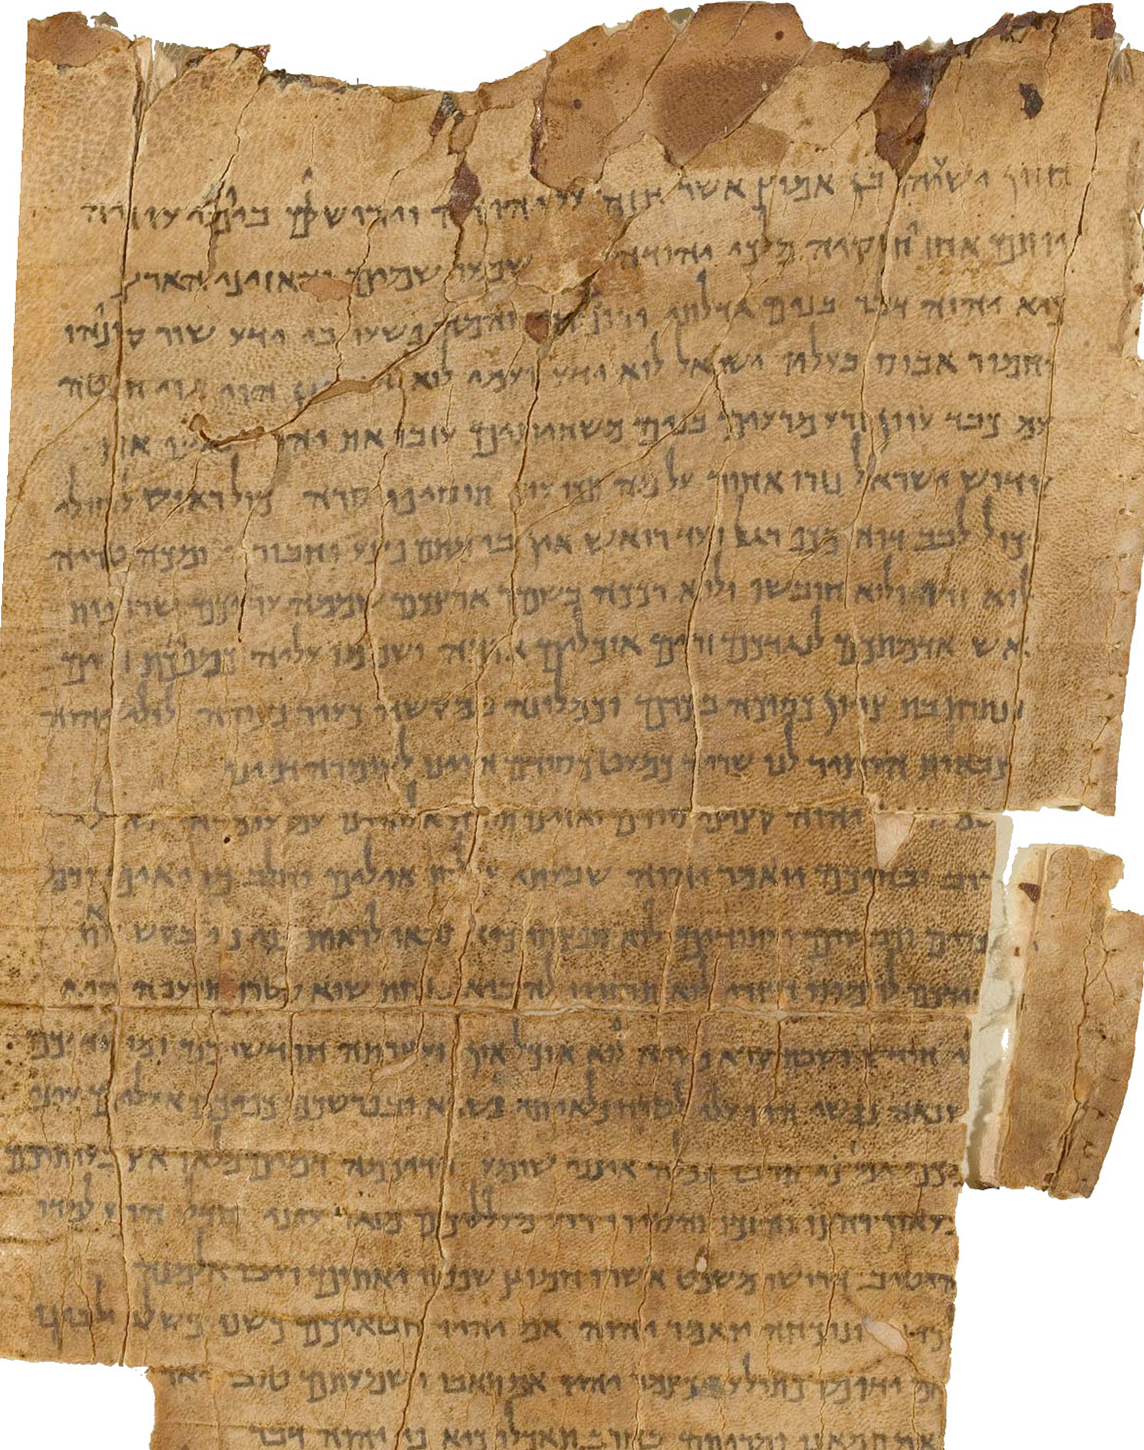 חזון ישעיהו בן אמוץ אשר חזה על יהודה וירושלם ביומי עוזיה
יותם אחז יחזקיה מלכי יהודה שמעו שמים והאזינו הארץ
כיא יהוה דבר בנים גדלתי ורוממתי והמה פשעו בי ידע שור קונהו
וחמור אבוס בעליו ישראל לוא ידע ועמי לוא הוי גוי חוטה
עם כבד עוון זרע מרעים בנים משחיתים עזבו את יהוה את
קדוש ישראל נזרו אחור על מה תכו עוד תוסיפו סרה כול ראוש לחולי
כול לבב דוה מכף רגל ועד רואש אין בו מתם פצע וחבורה ומכה טריה
לוא זרו ולוא חובשו ולוא רככה בשמן ארצכם שממה עריכם שרופות
אש אדמתכם לנגדכם זרים אוכלים אותה ושממו עליה זרים
ונותרת בת ציון כסוכה בכרם וכמלונה במקשה כעיר נצורה לולי יהוה
צבאות הותיר לנו שריד כמעט כסודם היינו לעומרה דמינו
יהוה קציני סודם האזינו אלוהינו עם עומרה למה לי
רוב זבחיכם יאמר יהוה שבעתי עולות אילים וחלב מריאים ודם
וכבשים ועתודים לוא חפצתי כיא תבואו לראות פני מי בקש זאת
מידכם לרמוס חצרי לוא תוסיפו להביא מנחת שוא קטרת תועבה היא
לי חודש ושבת קרא מקרא לוא אוכל און ועצרתה חודשיכם ומועדיכם
שנאה נפשי היו עלי לטרח נלאיתי נשא ובפרשכם כפיכם אעלים עיני
מכם גם כי תרבו תפלה אינני שומע ידיכמה דמים מלאו אצבעותיכם
בעאון רחצו והזכו והסירו רוע מעלליכם מנגד עיני חדלו הרע למדו
היטיב דרושו משפט אשרו חמוץ שפטו יאתום ריבו אלמנה
ונוכחה יואמר יהוה אם יהיו חטאיכם כשני כשלג ילבינו
אם יאדימו כתולע כצמר יהיו אם תאבו ושמעתם טוב
ואם תמאנו ומריתם בחרב תאכלו כיא פי יהוה דבר